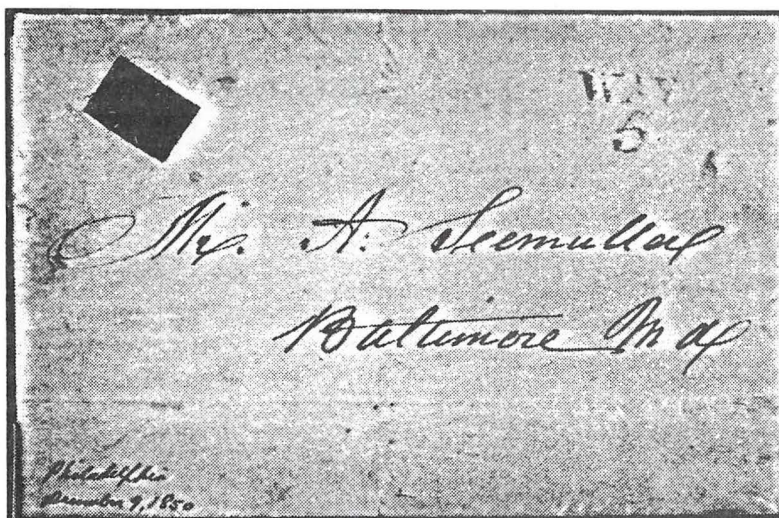 WAY
6
Mr. A. Seemuller
Baltimore Md
Philadelphia
December 9, 1850